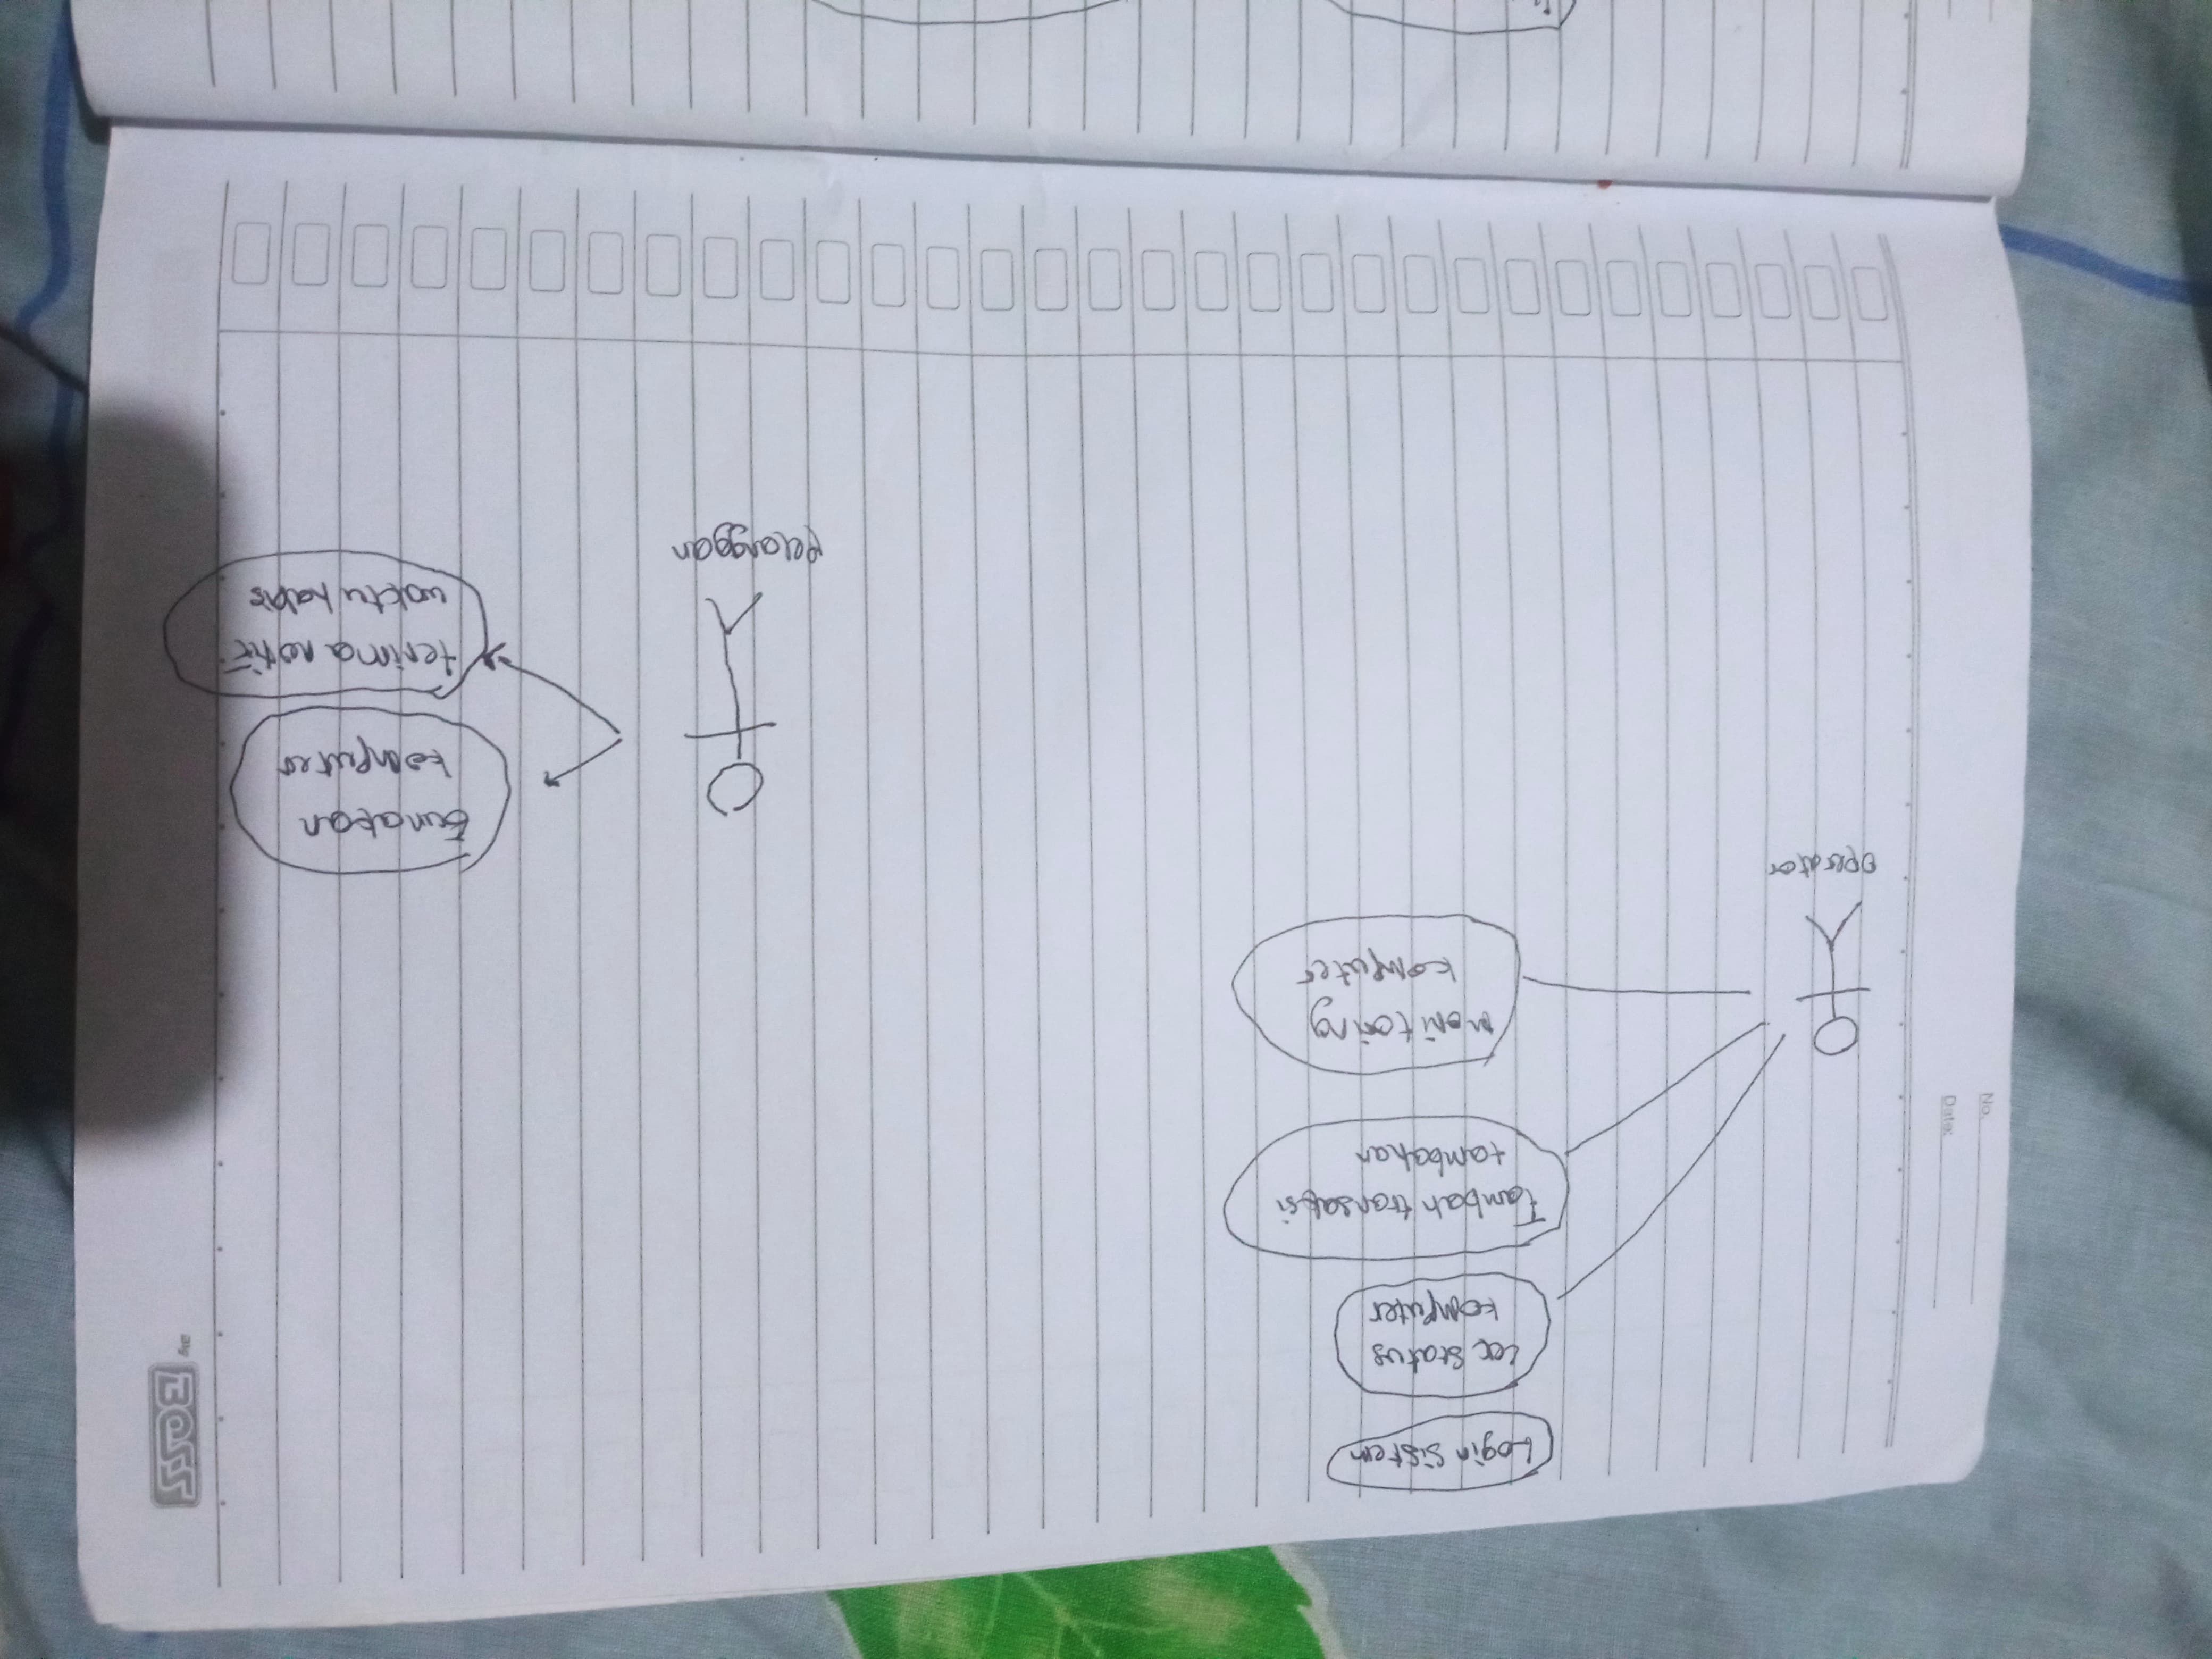 Login Sistem
Cek Status
Komputer
Tambah transaksi
tambahan
monitoring
komputer
operator
Gunakan
komputer
terima notif
waktu habis
Pelanggan
No.
Date:
BOSS